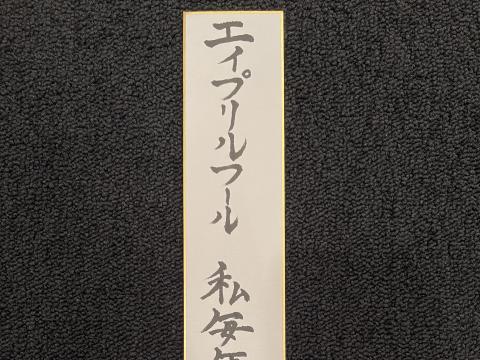 エイプリルフール 私毎年